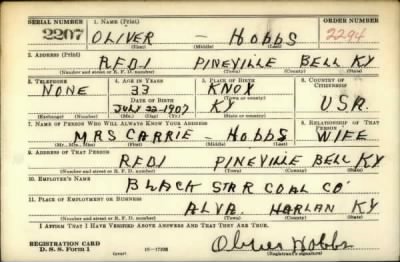 SERIAL NUMBER 1. NAME (Print) ORDER NUMBER
2207 OLIVER - HOBBS 2294
(First) (Middle) (Last)
2. ADDRESS (Print)
RFD1 PINEVILLE BELL KY
(Number and street or R. F. D. number) (Town) (County) (State)
3. TELEPHONE 4. AGE IN YEARS 5. PLACE OF BIRTH 6. COUNTRY OF CITIZENSHIP
NONE 33 KNOX
(Town or county)
DATE OF BIRTH
JULY 22-1907 KY USA.
(Exchange) (Number) (Mo.) (Day) (Yr.) (State or country)
7. NAME OF PERSON WHO WILL ALWAYS KNOW YOUR ADDRESS 8. RELATIONSHIP OF THAT PERSON
MRS CARRIE - HOBBS WIFE
(Mr., Mrs., Miss) (First) (Middle) (Last)
9. ADDRESS OF THAT PERSON
RFD1 PINEVILLE BELL KY
(Number and street or R. F. D. number) (Town) (County) (State)
10. EMPLOYER'S NAME
BLACK STAR COAL CO
11. PLACE OF EMPLOYMENT OR BUSINESS
ALVA. HARLAN KY
(Number and street or R. F. D. number) (Town) (County) (State)
I AFFIRM THAT I HAVE VERIFIED ABOVE ANSWERS AND THAT THEY ARE TRUE.
REGISTRATION CARD
D. S. S. Form 1 (over) Oliver Hobbs
(Registrant's signature)